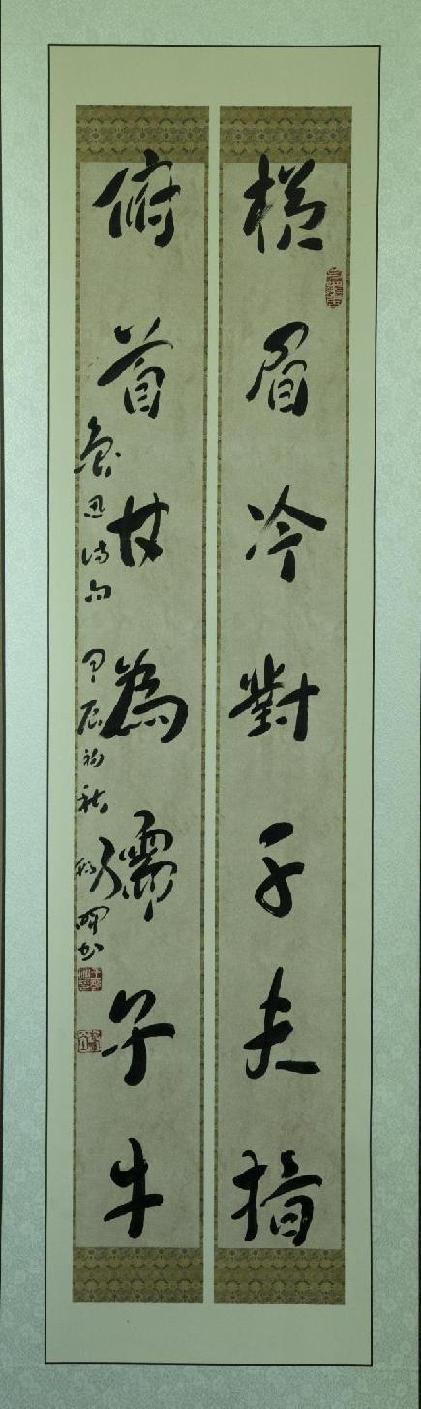 橫眉冷對千夫指
俯首甘為孺子牛
魯迅詩句 甲辰初秋 书